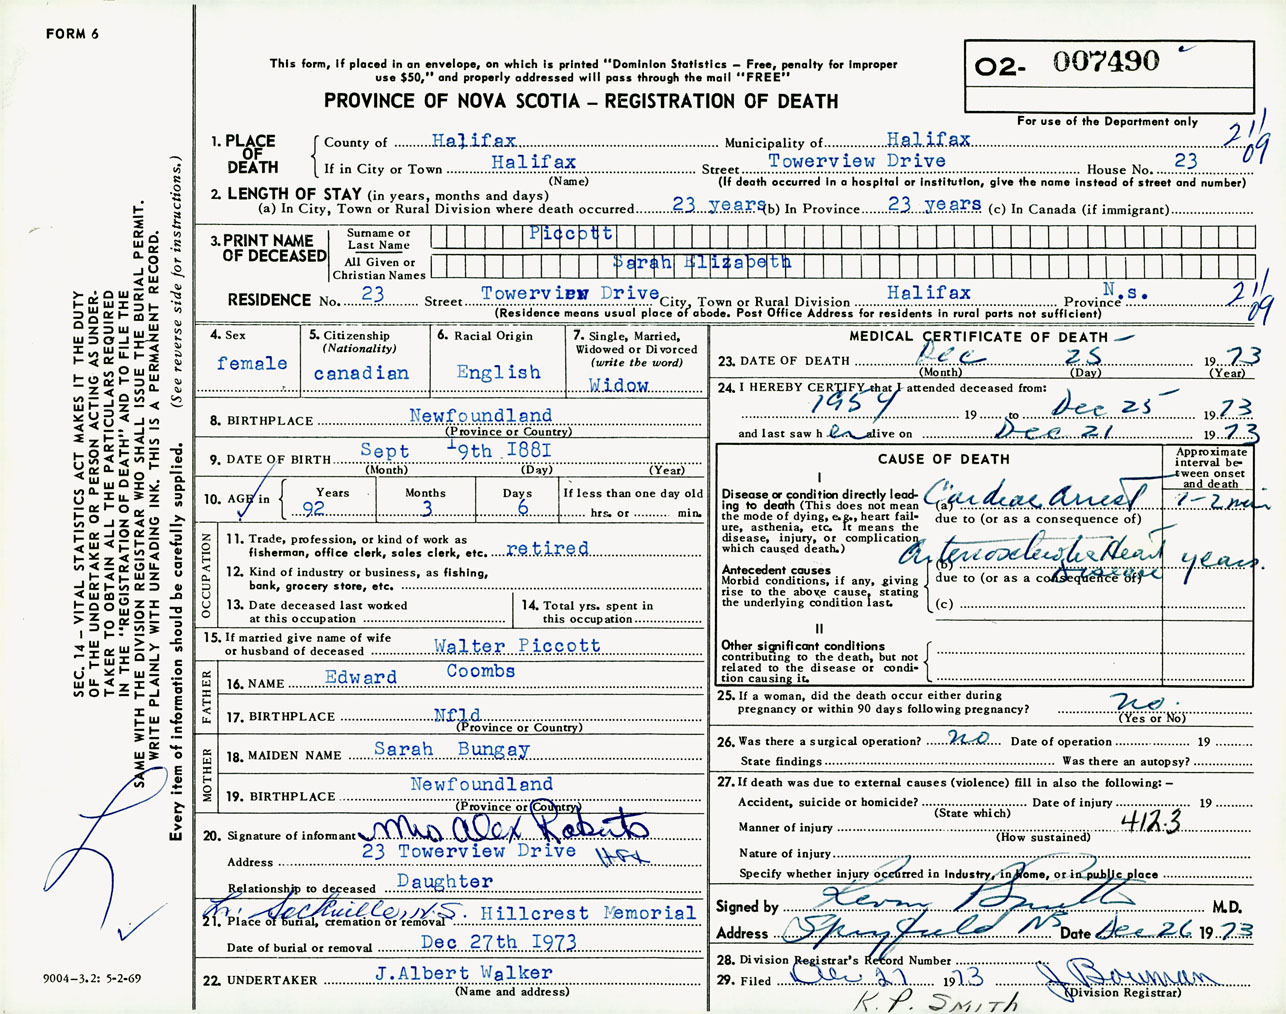 FORM 6
This form, if placed in an envelope, on which is printed "Dominion Statistics – Free, penalty for improper
use $50," and properly addressed will pass through the mail "FREE"
PROVINCE OF NOVA SCOTIA – REGISTRATION OF DEATH
O2- 007490
For use of the Department only
211
09
1. PLACE OF DEATH
County of Halifax Municipality of Halifax
If in City or Town Halifax Street Towerview Drive House No. 23
(Name) (If death occurred in a hospital or institution, give the name instead of street and number)
2. LENGTH OF STAY (in years, months and days)
(a) In City, Town or Rural Division where death occurred 23 years (b) In Province 23 years (c) In Canada (if immigrant)
3. PRINT NAME OF DECEASED
Surname or Last Name Piccott
All Given or Christian Names Sarah Elizabeth
RESIDENCE No. 23 Street Towerview Drive City, Town or Rural Division Halifax Province N.s.
211
09
(Residence means usual place of abode. Post Office Address for residents in rural parts not sufficient)
4. Sex
female
5. Citizenship
(Nationality)
canadian
6. Racial Origin
English
7. Single, Married,
Widowed or Divorced
(write the word)
Widow
8. BIRTHPLACE Newfoundland
(Province or Country)
9. DATE OF BIRTH Sept 19th I88I
(Month) (Day) (Year)
10. AGE in
Years 92
Months 3
Days 6
If less than one day old
hrs. or min.
OCCUPATION
11. Trade, profession, or kind of work as
fisherman, office clerk, sales clerk, etc. retired
12. Kind of industry or business, as fishing,
bank, grocery store, etc.
13. Date deceased last worked
at this occupation
14. Total yrs. spent in
this occupation
15. If married give name of wife
or husband of deceased Walter Piccott
FATHER
16. NAME Edward Coombs
17. BIRTHPLACE Nfld
(Province or Country)
MOTHER
18. MAIDEN NAME Sarah Bungay
19. BIRTHPLACE Newfoundland
(Province or Country)
20. Signature of informant Mrs Alex Roberts
Address 23 Towerview Drive Hfx
Relationship to deceased Daughter
Lr. Sackville, N.S. Hillcrest Memorial
21. Place of burial, cremation or removal
Date of burial or removal Dec 27th I973
22. UNDERTAKER J.Albert Walker
(Name and address)
MEDICAL CERTIFICATE OF DEATH
23. DATE OF DEATH Dec 25 1973
(Month) (Day) (Year)
24. I HEREBY CERTIFY that I attended deceased from:
1954 19 to Dec 25 1973
and last saw h er alive on Dec 21 1973
CAUSE OF DEATH
Approximate
interval be-
tween onset
and death
I
Disease or condition directly lead-
ing to death (This does not mean
the mode of dying, e.g., heart fail-
ure, asthenia, etc. It means the
disease, injury, or complication
which caused death.)
(a) Cardiac Arrest 1-2 min
due to (or as a consequence of)
Antecedent causes
Morbid conditions, if any, giving
rise to the above cause, stating
the underlying condition last.
(b) Arteriosclerotic Heart Disease years.
due to (or as a consequence of)
(c)
II
Other significant conditions
contributing to the death, but not
related to the disease or condi-
tion causing it.
25. If a woman, did the death occur either during
pregnancy or within 90 days following pregnancy? no.
(Yes or No)
26. Was there a surgical operation? no Date of operation 19
State findings Was there an autopsy?
27. If death was due to external causes (violence) fill in also the following: –
Accident, suicide or homicide? Date of injury 19
(State which)
Manner of injury 412.3
(How sustained)
Nature of injury
Specify whether injury occurred in Industry, in Home, or in public place
Signed by Kevin P Smith M.D.
Address Spryfield NS Date Dec 26 1973
28. Division Registrar's Record Number
29. Filed Dec 27 1973 J Bowman
(Division Registrar)
K. P. SMITH
SEC. 14 – VITAL STATISTICS ACT MAKES IT THE DUTY
OF THE UNDERTAKER OR PERSON ACTING AS UNDER-
TAKER TO OBTAIN ALL THE PARTICULARS REQUIRED
IN THE "REGISTRATION OF DEATH" AND TO FILE THE
SAME WITH THE DIVISION REGISTRAR WHO SHALL ISSUE THE BURIAL PERMIT.
WRITE PLAINLY WITH UNFADING INK. THIS IS A PERMANENT RECORD.
Every item of information should be carefully supplied. (See reverse side for instructions.)
9004–3.2: 5-2-69